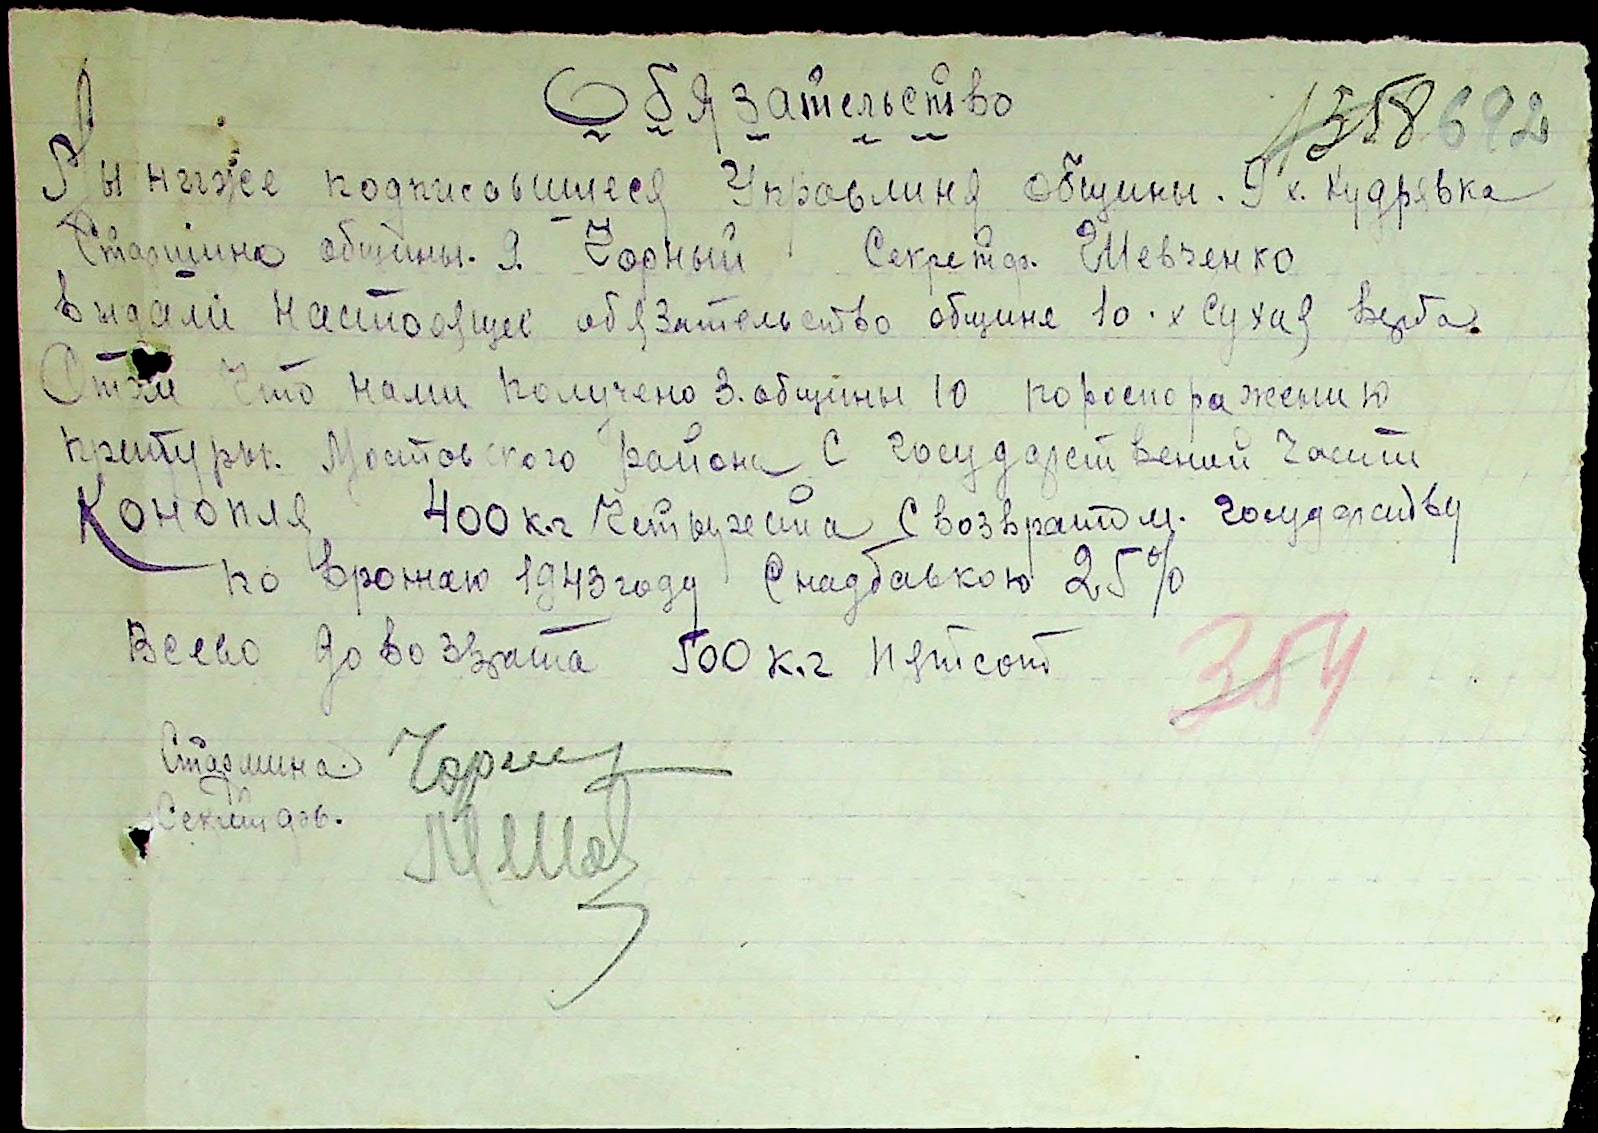 Обязательство
1358 692
Мы ниже подписавшиеся Управлиня общины. 9 х. Кудрявка
Старшина общины. 9. Чорный Секретар. Шевченко
выдали настоящее обязательство общине 10. х Сухая верба.
Стем что нами получено З. общины 10 пороспоражению
притуры. Мостовского района С государственей части
Конопля 400 кг Четыриста С возвратом. государству
по врожаю 1943 году Снадбавкою 25%
Всево до возврата 500 к.г пятсот
354
Старшина. Чорный
Секритарь.